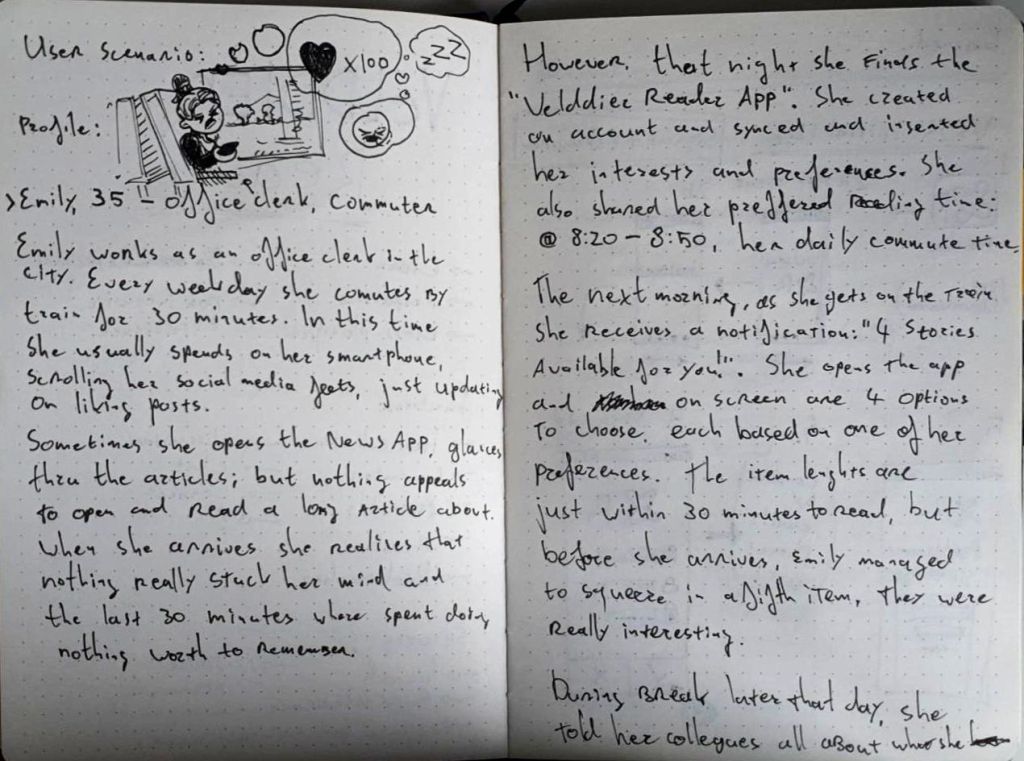 User Scenario:
x100
zzz
Profile:
> Emily, 35 – office clerk, commuter
Emily works as an office clerk in the
city. Every weekday she comutes by
train for 30 minutes. In this time
she usually spends on her smartphone,
scrolling her social media feets, just updating
on liking posts.
Sometimes she opens the News App, glances
thru the articles; but nothing appeals
to open and read a long article about.
When she arrives she realizes that
nothing really stuck her mind and
the last 30 minutes where spent doing
nothing worth to remember.
However, that night she finds the
"Velddiec Reader App". She created
an account and synced and inserted
her interests and preferences. She
also shared her preffered time:
@ 8:20 – 8:50, her daily commute time.
The next morning, as she gets on the train
she receives a notification: "4 Stories
Available for you!". She opens the app
and on screen are 4 options
to choose, each based on one of her
preferences. The item lenghts are
just within 30 minutes to read, but
before she arrives, Emily managed
to squeeze in a fifth item, they were
really interesting.
During break later that day, she
told her collegues all about she